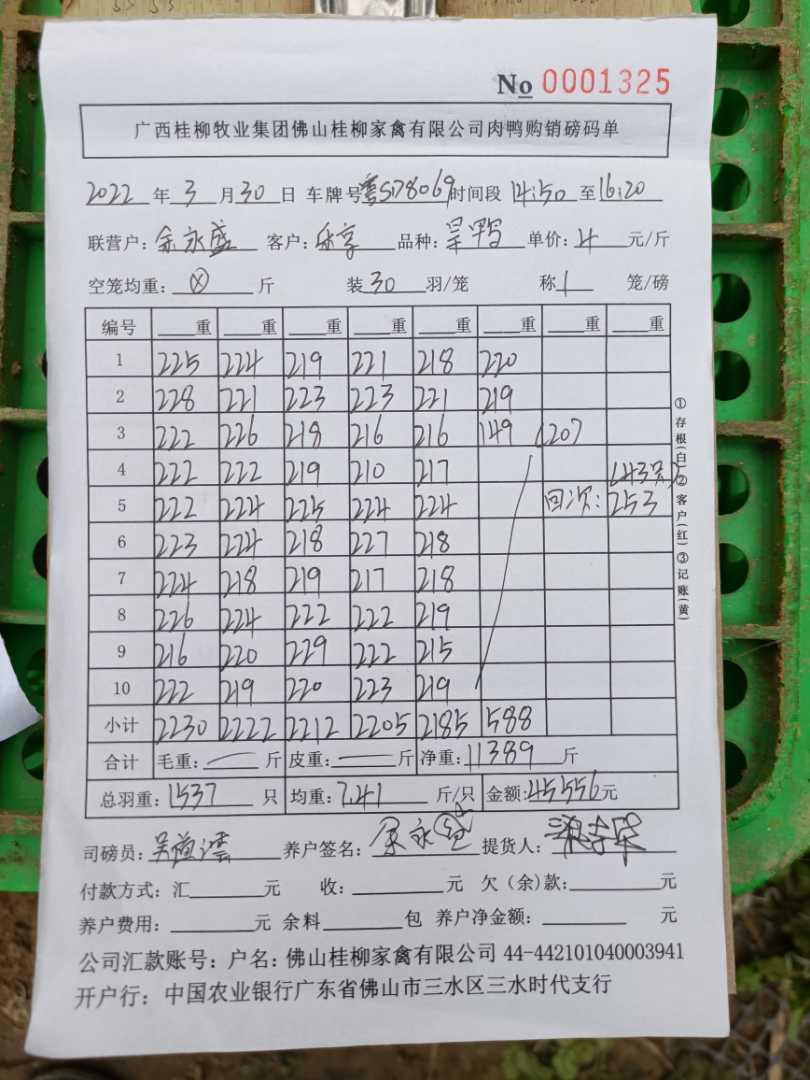 No 0001325
广西桂柳牧业集团佛山桂柳家禽有限公司肉鸭购销磅码单
2022 年 3 月 30 日 车牌号 粤S178069 时间段 14:50 至 16:20
联营户: 余永盛 客户: 乐享 品种: 旱鸭 单价: 4 元/斤
空笼均重: ⊗ 斤 装 30 羽/笼 称 1 笼/磅
编号 重 重 重 重 重 重 重 重
1 225 224 219 221 218 220
2 228 221 223 223 221 219
3 222 226 218 216 216 149 (20只)
4 222 222 219 210 217 (43只)
5 222 224 225 224 224 回次: 253
6 223 224 218 227 218
7 224 218 219 217 218
8 226 224 222 222 219
9 216 220 229 222 215
10 222 219 220 223 219
小计 2230 2222 2212 2205 2185 588
合计 毛重: 斤 皮重: 斤 净重: 11389 斤
总羽重: 1537 只 均重: 7.41 斤/只 金额: 45556 元
司磅员: 养户签名: 余永盛 提货人:
付款方式: 汇 元 收: 元 欠(余)款: 元
养户费用: 元 余料 包 养户净金额: 元
公司汇款账号: 户名: 佛山桂柳家禽有限公司 44-442101040003941
开户行: 中国农业银行广东省佛山市三水区三水时代支行
①存根(白)②客户(红)③记账(黄)